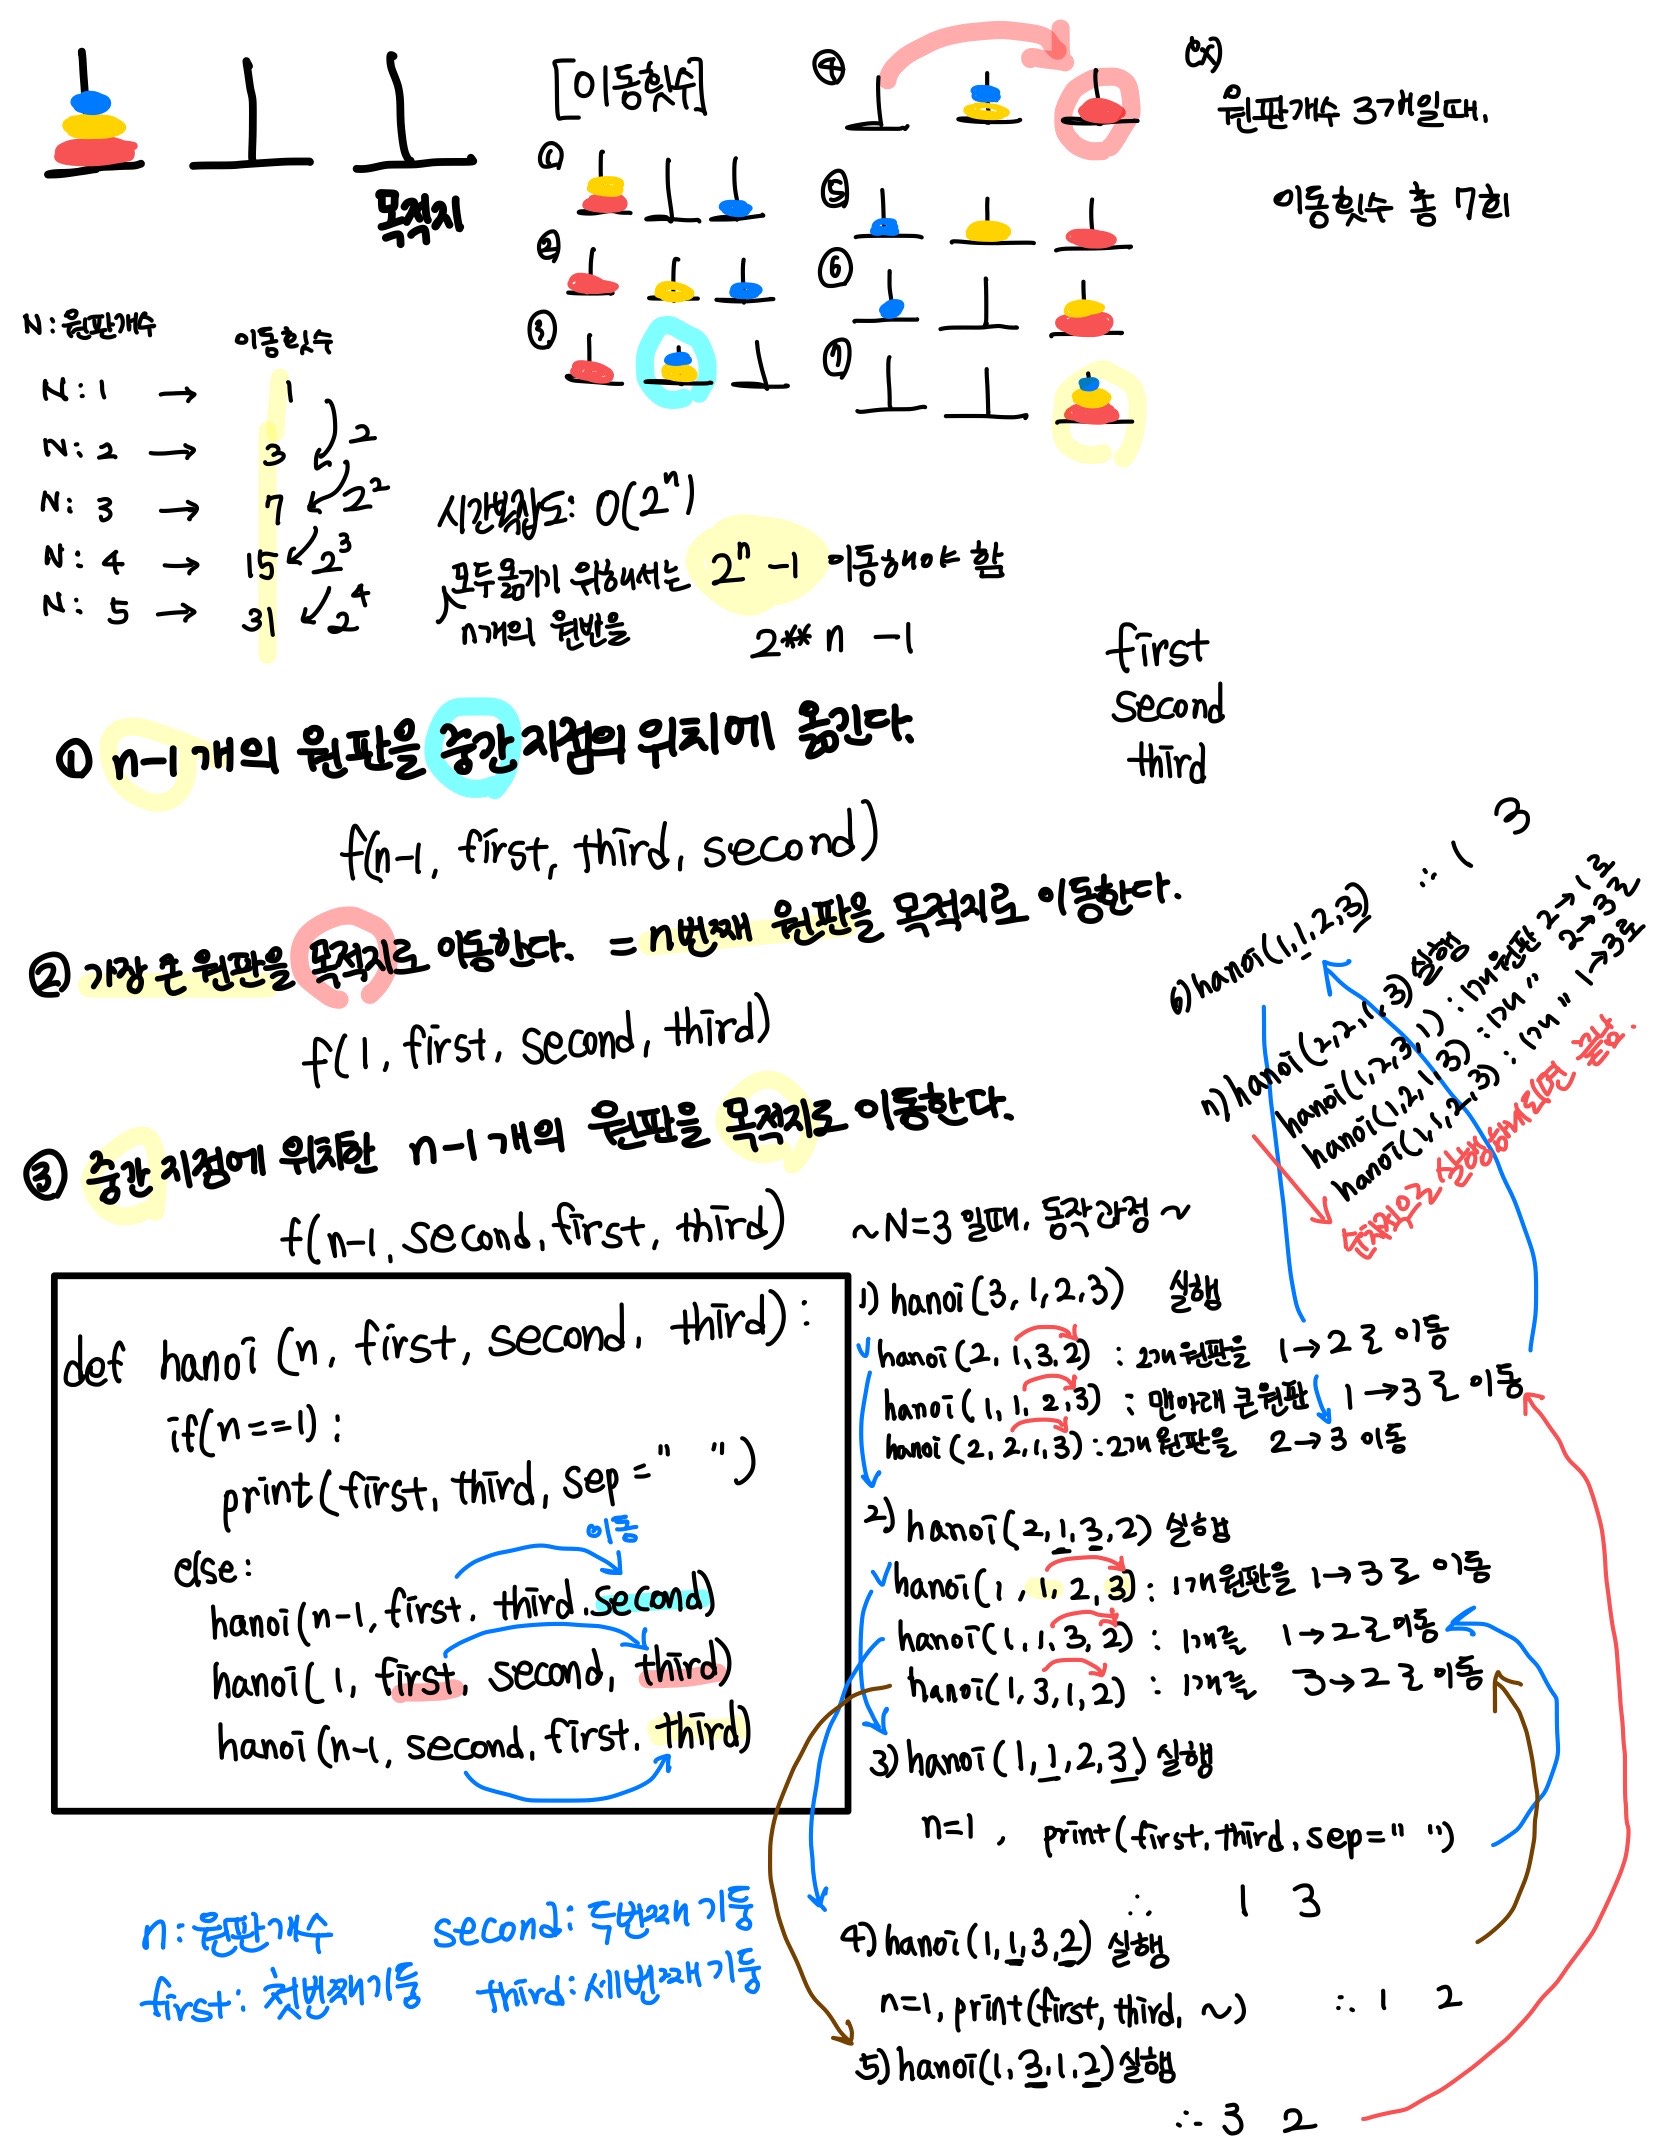 목적지
[이동횟수]
①
②
③
④
⑤
⑥
⑦
ex)
원판개수 3개일때.
이동횟수 총 7회
N: 원판개수 이동횟수
N: 1 → 1
2
N: 2 → 3
2²
N: 3 → 7
2³
N: 4 → 15
2⁴
N: 5 → 31
시간복잡도: O(2ⁿ)
모두옮기기 위해서는 2ⁿ-1 이동해야 함
n개의 원반을
2** n -1
first
second
third
① n-1개의 원판을 중간 지점의 위치에 옮긴다.
f(n-1, first, third, second)
② 가장 큰 원판을 목적지로 이동한다. = n번째 원판을 목적지로 이동한다.
f(1, first, second, third)
③ 중간 지점에 위치한 n-1개의 원판을 목적지로 이동한다.
f(n-1, second, first, third)
def hanoi (n, first, second, third):
if(n==1):
print(first, third, sep=" ")
이동
else:
hanoi(n-1, first, third, second)
hanoi(1, first, second, third)
hanoi(n-1, second, first, third)
n: 원판개수 second: 두번째 기둥
first: 첫번째기둥 third: 세번째 기둥
~N=3 일때, 동작과정~
1) hanoi(3,1,2,3) 실행
hanoi(2,1,3,2) : 2개원판을 1→2로 이동
hanoi(1,1,2,3) : 맨아래 큰원판 1→3로 이동
hanoi(2,2,1,3) : 2개원판을 2→3 이동
2) hanoi(2,1,3,2) 실행
hanoi(1,1,2,3) : 1개원판을 1→3로 이동
hanoi(1,1,3,2) : 1개를 1→2로이동
hanoi(1,3,1,2) : 1개를 3→2로 이동
3) hanoi(1,1,2,3) 실행
n=1, print(first, third, sep=" ")
∴ 1 3
4) hanoi(1,1,3,2) 실행
n=1, print(first, third, ~) ∴ 1 2
5) hanoi(1,3,1,2) 실행
∴ 3 2
6) hanoi(1,1,2,3) ∴ 1 3
7) hanoi(2,2,1,3) 실행
hanoi(1,2,3,1) : 1개원판 2→1로
hanoi(1,2,1,3) : 1개 " 2→3로
hanoi(1,1,2,3) : 1개 " 1→3로
순차적으로 실행하게되면 끝남.